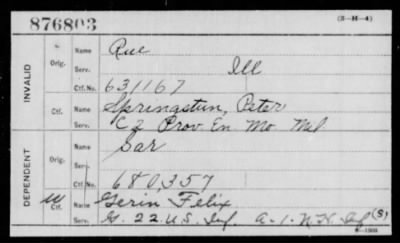 876803 (3-H-4)
INVALID Orig. Name Rue
Serv. Ill
Ctf. No. 631167
Ctf. Name Springstun, Peter
Serv. C 2 Prov. En Mo Mil
DEPENDENT Orig. Name Sar
Serv.
Ctf. No. 680,357
W Ctf. Name Gerin Felix
Serv. G. 22. U.S. Inf. A-1-N.H. Inf (S)